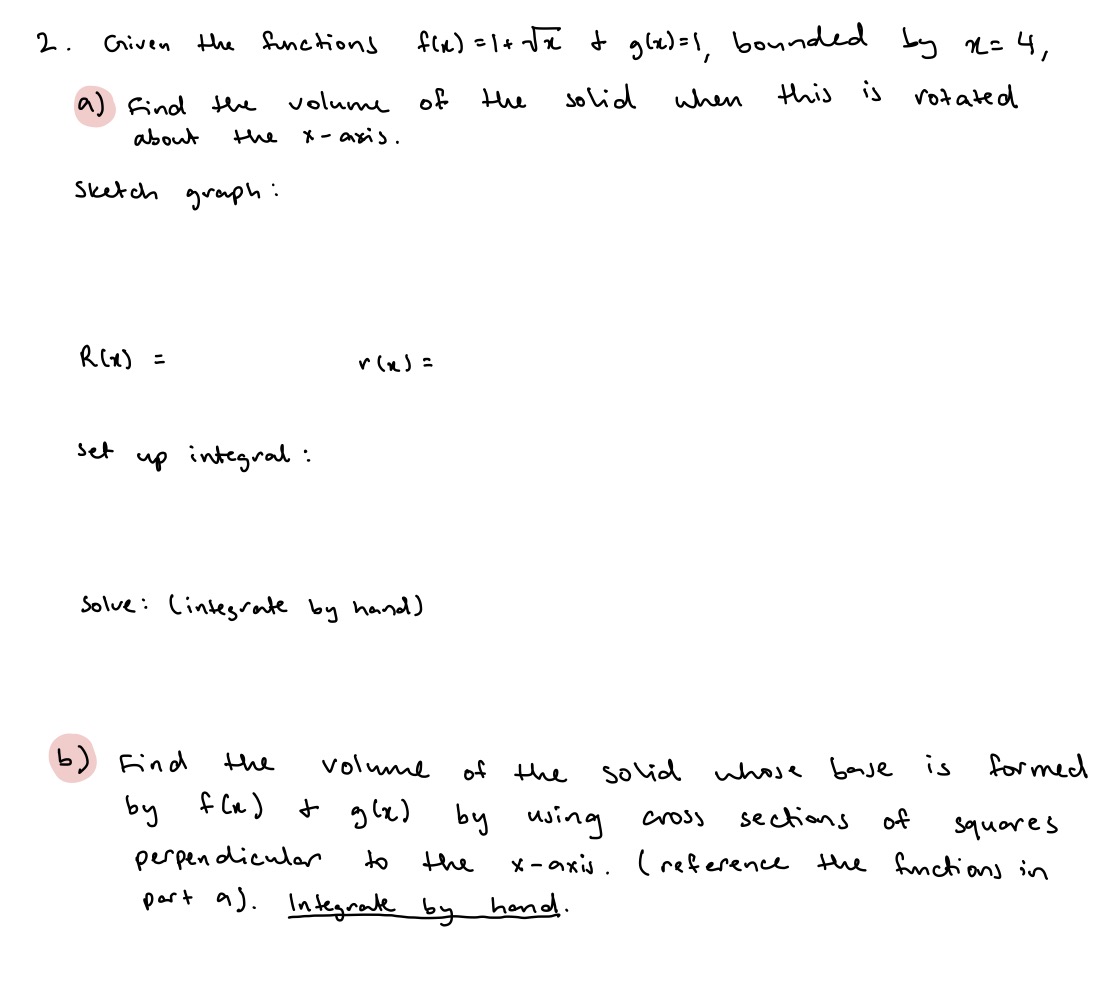 2. Given the functions f(x) = 1 + √x & g(x) = 1, bounded by x = 4,
a) Find the volume of the solid when this is rotated
about the x-axis.
Sketch graph:
R(x) = r(x) =
set up integral:
Solve: (integrate by hand)
b) Find the volume of the solid whose base is formed
by f(x) & g(x) by using cross sections of squares
perpendicular to the x-axis. (reference the functions in
part a). Integrate by hand.